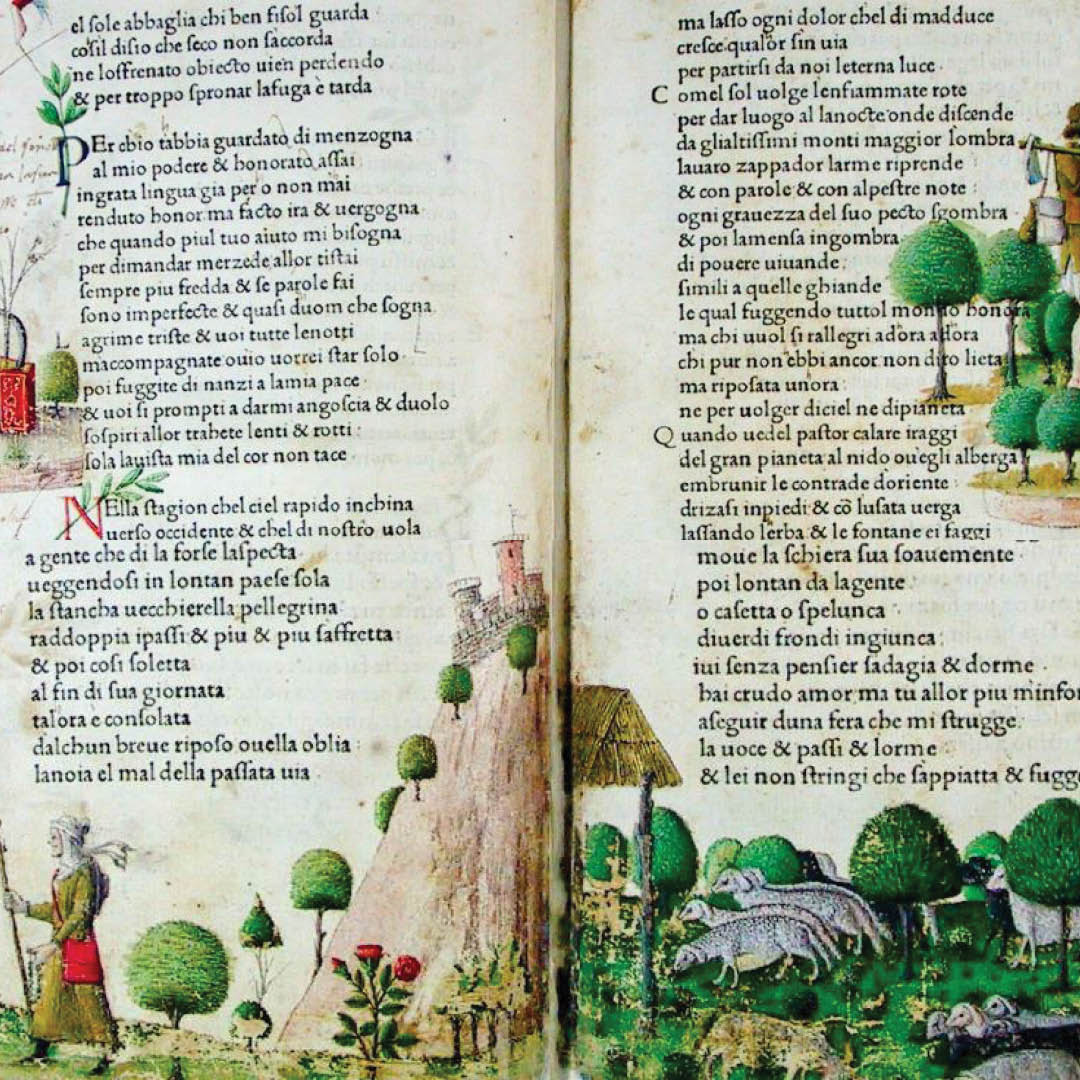 el sole abbaglia chi ben fisol guarda
cosil disio che seco non saccorda
ne losfrenato obiecto uien perdendo
& per troppo spronar lafuga è tarda
PEr chio tabbia guardato di menzogna
al mio podere & honorato assai
ingrata lingua gia pero non mai
renduto honor ma facto ira & uergogna
che quando piul tuo aiuto mi bisogna
per dimandar merzede allor tistai
sempre piu fredda & se parole fai
sono imperfecte & quasi duom che sogna
agrime triste & uoi tutte lenotti
maccompagnate ouio uorrei star solo
poi fuggite di nanzi a lamia pace
& uoi si prompti a darmi angoscia & duolo
sospiri allor trahete lenti & rotti :
sola lauista mia del cor non tace
NElla stagion chel ciel rapido inchina
uerso occidente & chel di nostro uola
a gente che di la forse laspecta
ueggendosi in lontan paese sola
la stancha uecchierella pellegrina
raddoppia ipassi & piu & piu saffretta
& poi cosi soletta
al fin di sua giornata
talora è consolata
dalchun breue riposo ouella oblia :
lanoia el mal della passata uia .
ma lasso ogni dolor chel di madduce
cresce qualor sin uia
per partirsi da noi leterna luce .
Comel sol uolge lenfiammate rote
per dar luogo al lanocte onde discende
da glialtissimi monti maggior lombra
lauaro zappador larme riprende
& con parole & con alpestre note :
ogni grauezza del suo pecto sgombra
& poi lamensa ingombra
di pouere uiuande
simili a quelle ghiande
le qual fuggendo tuttol mondo honora
ma chi uuol si rallegri adora adora
chi pur non ebbi ancor non diro lieta
ma riposata unora :
ne per uolger diciel ne dipianeta
Quando uedel pastor calare iraggi
del gran pianeta al nido ouegli alberga
embrunir le contrade doriente
drizasi inpiedi & cō lusata uerga
lassando lerba & le fontane ei faggi
moue la schiera sua soauemente
poi lontan da lagente
o casetta o spelunca
diuerdi frondi ingiunca :
iui senza pensier sadagia & dorme .
hai crudo amor ma tu allor piu minfor
aseguir duna fera che mi strugge.
la uoce & passi & lorme
& lei non stringi che sappiatta & fugge